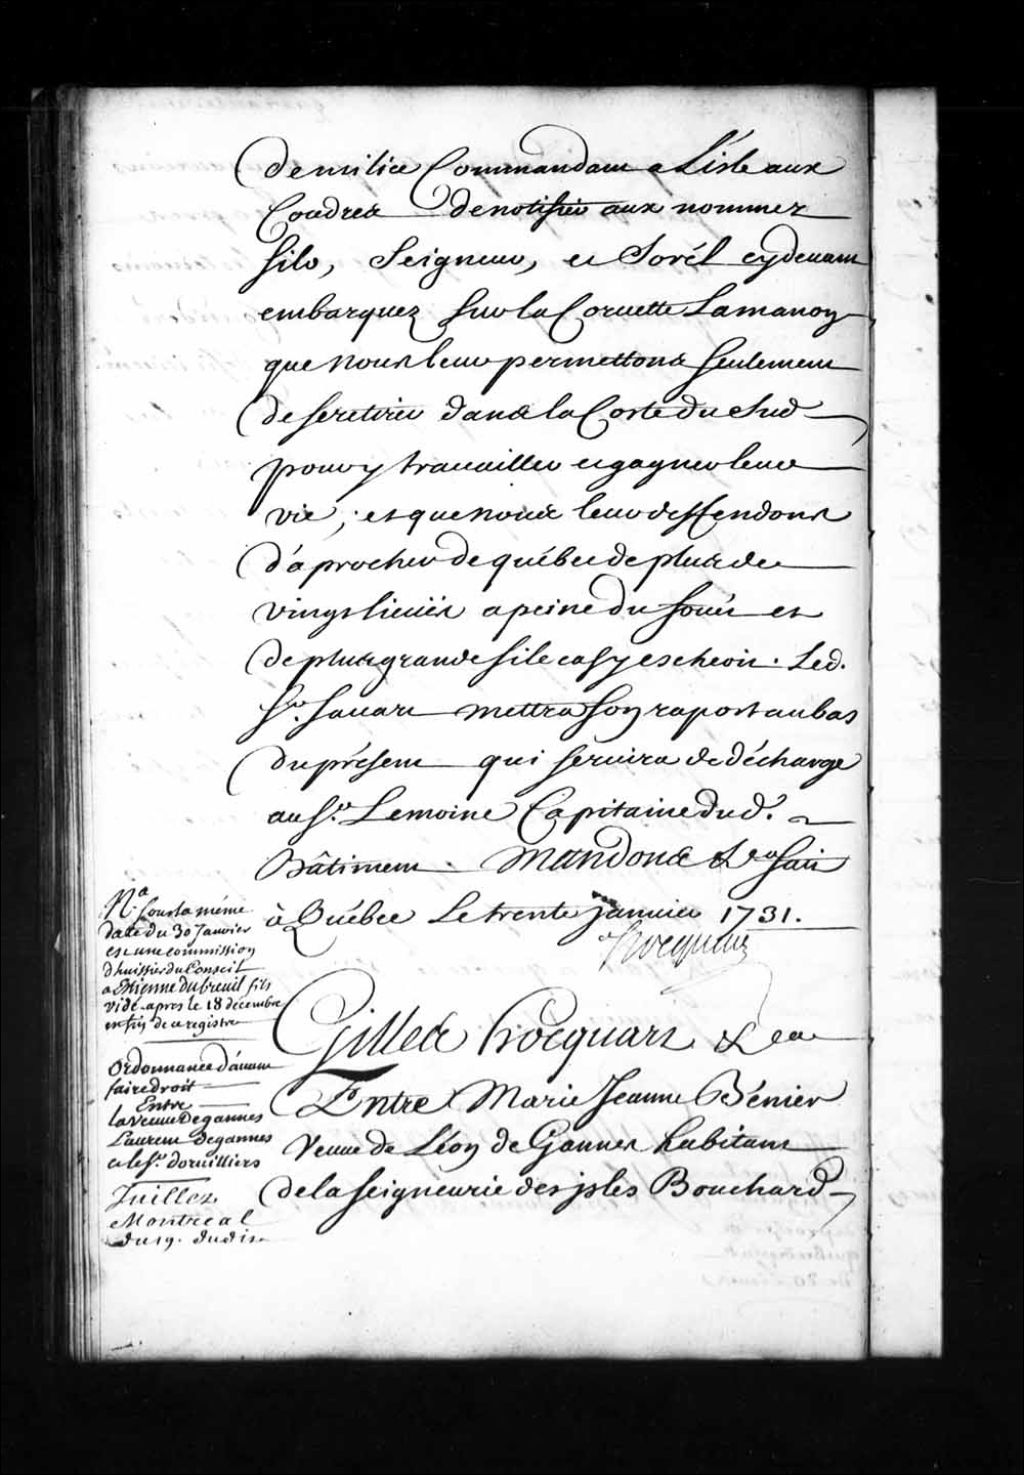 de milice Commandant a L'isle aux
Coudres de notifier aux nommez
filo, Seigneur, et Sorél cy devant
embarquez sur la Corvette Lamanon
que nous leur permettons seulement
de se retirer dans la Coste du Sud
pour y travailler et gagner leur
vie ; et que nous leur deffendons
d'aprocher de québec de plus de
vingt lieües a peine du foüet et
de plus grande si le cas y escheoit. Led.
Sr. Savart mettra son raport au bas
du présent qui servira de décharge
au Sr. Lemoine Capitaine dud.
Bâtiment. Mandons &ca fait
à Québec Le trente janvier 1731.
Hocquart
Na. Sous la méme
datte du 30 Janvier
est une commission
d'huissier du Conseil
a Etienne dubreuil fils
vide apres le 18 décembre
en fin de ce registre
Gilles hocquart &ca
Ordonnance d'avant
faire droit
Entre
la veuve Degannes
Laurent degannes
et le Sr. dorvilliers
Entre Marie Jeanne Bénier
Veuve de Léon de Gannes habitant
de la seigneurie des jsles Bouchard
Juillet
Montreal
du 19. dudit